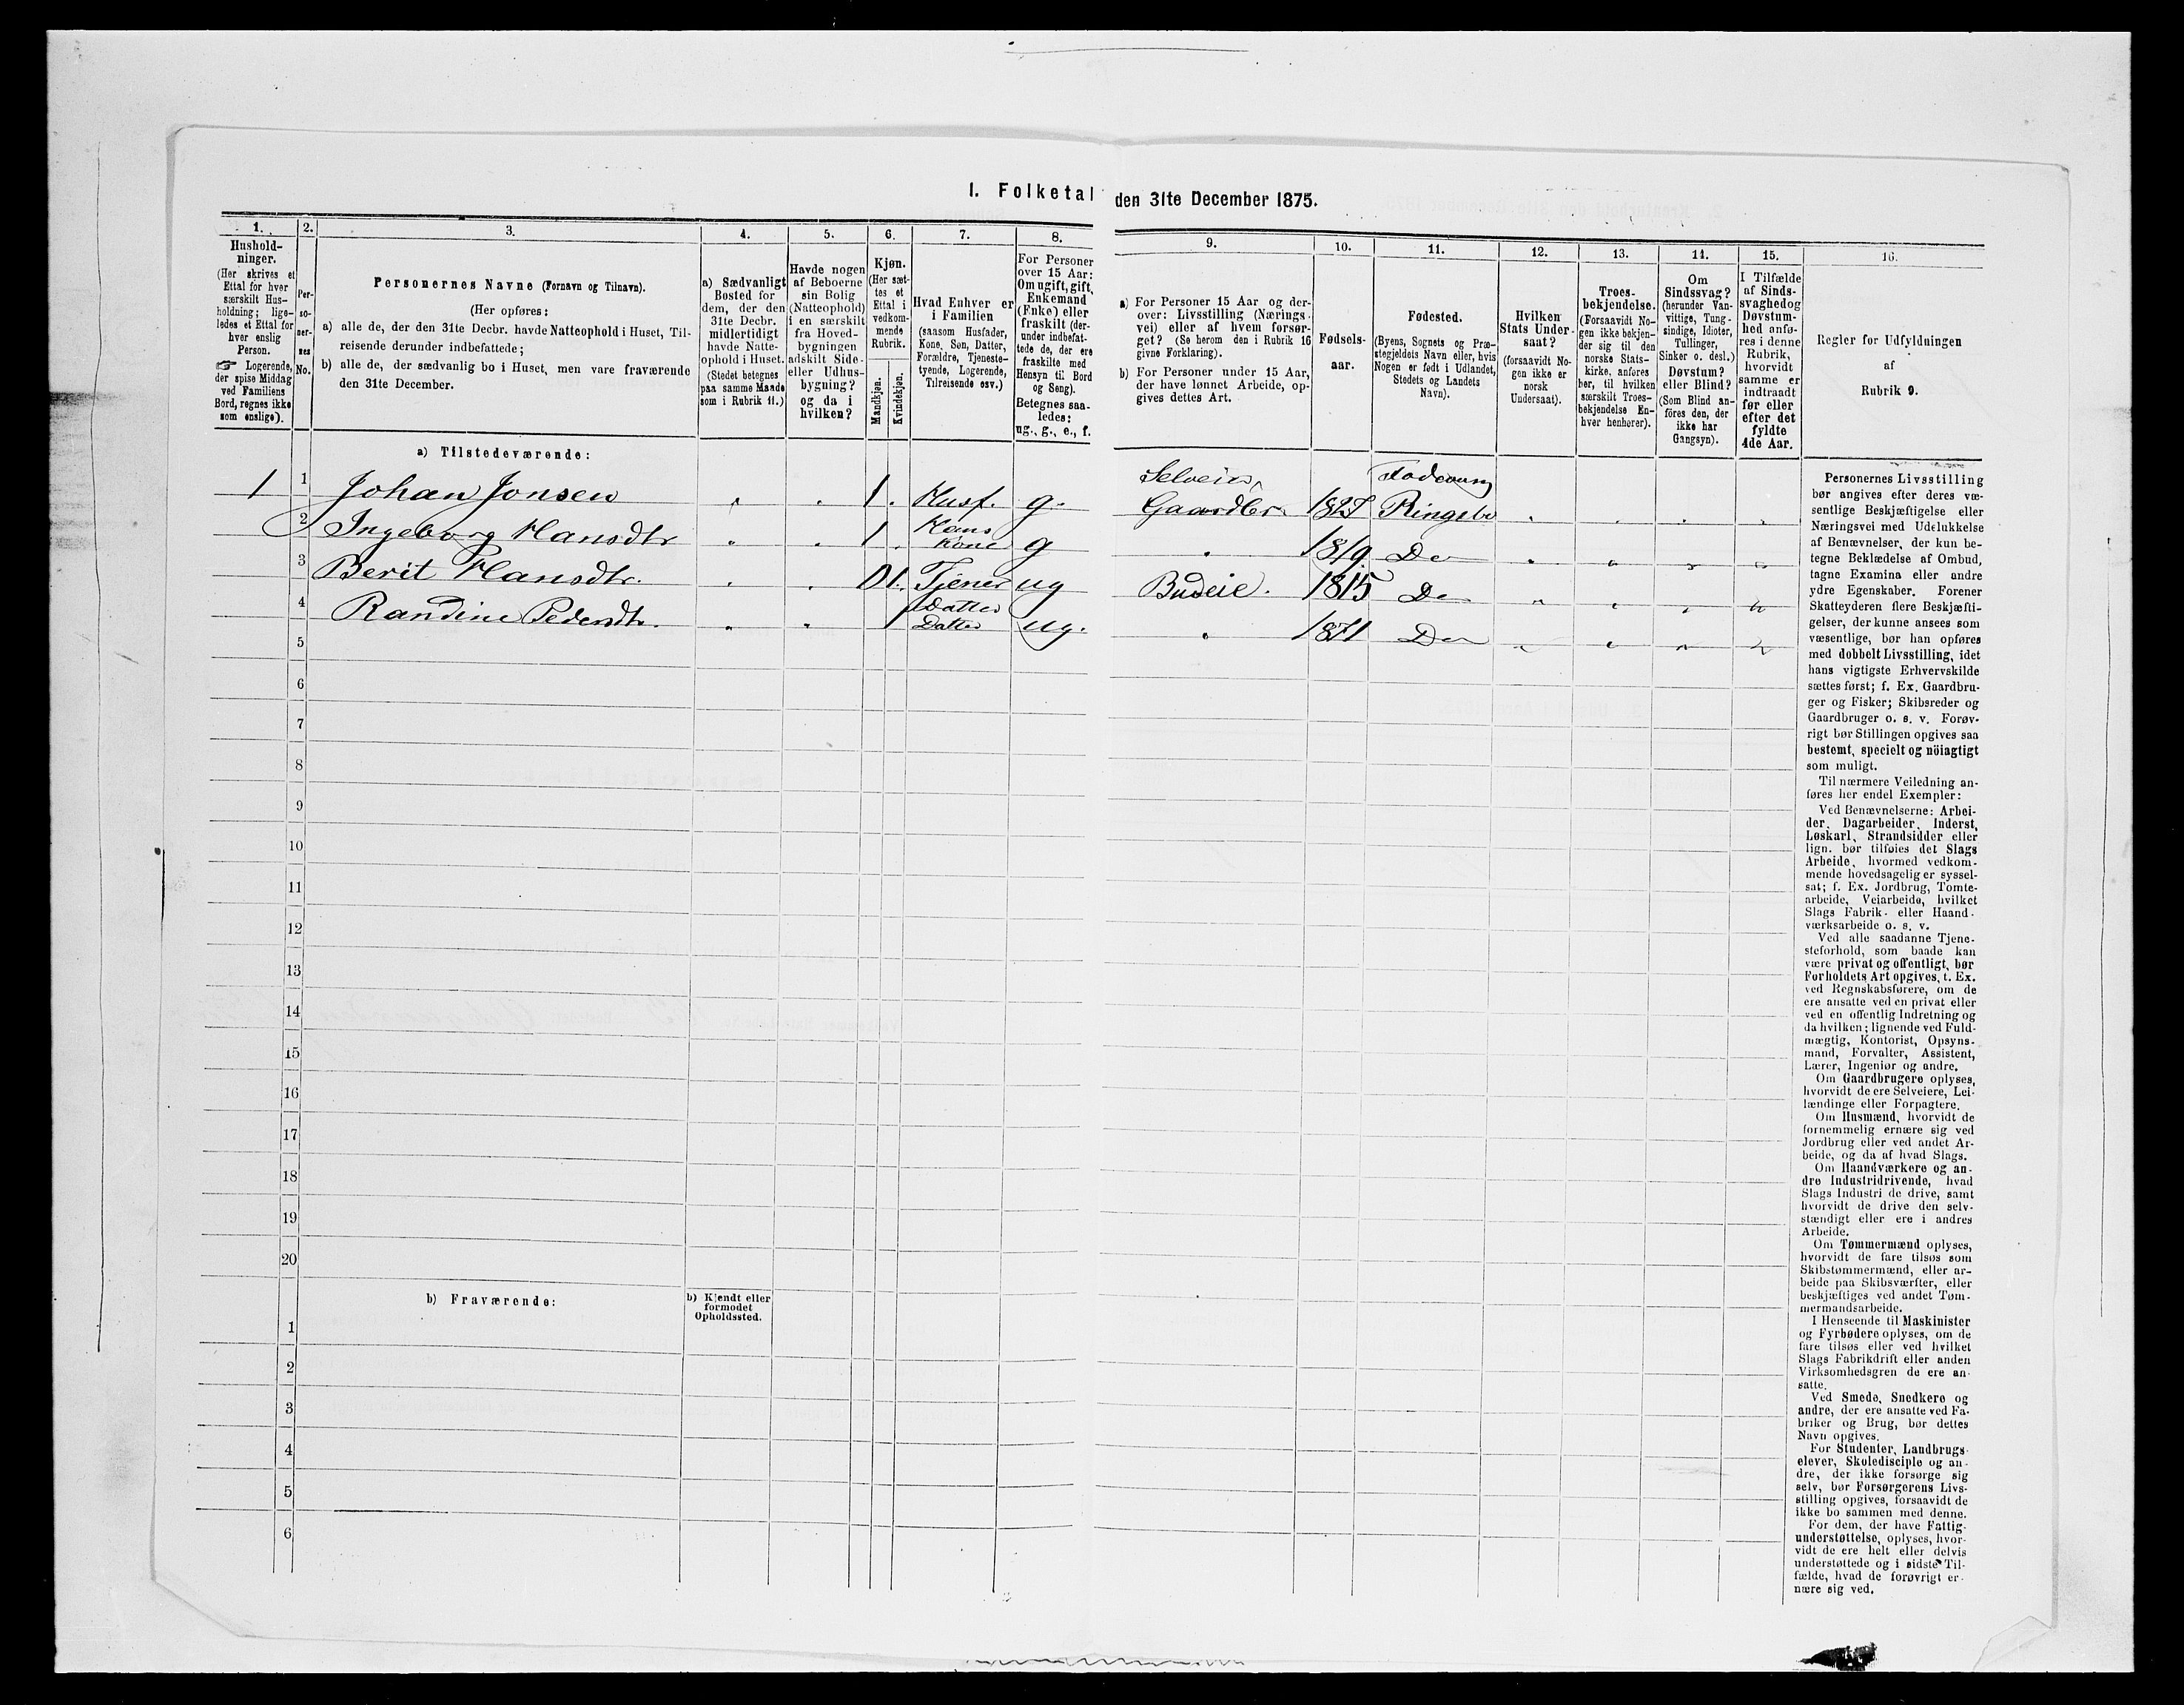 I. Folketal den 31te December 1875.
1.
Hushold-
ninger.
(Her skrives et
Ettal for hver
særskilt Hus-
holdning; lige-
ledes et Ettal for
hver enslig
Person.
☞ Logerende,
der spise Middag
ved Familiens
Bord, regnes ikke
som enslige).
2.
Per-
so-
ner-
nes
No.
3.
Personernes Navne (Fornavn og Tilnavn).
(Her opføres:
a) alle de, der den 31te Decbr. havde Natteophold i Huset, Til-
reisende derunder indbefattede;
b) alle de, der sædvanlig bo i Huset, men vare fraværende
den 31te December.
4.
a) Sædvanligt
Bosted for
dem, der den
31te Decbr.
midlertidigt
havde Natte-
ophold i Huset.
(Stedet betegnes
paa samme Maade
som i Rubrik 11.)
5.
Havde nogen
af Beboerne
sin Bolig
(Natteophold)
i en særskilt
fra Hoved-
bygningen
adskilt Side-
eller Udhus-
bygning?
og da i
hvilken?
6.
Kjøn.
(Her sæt-
tes et
Ettal i
vedkom-
mende
Rubrik.
Mandkjøn.
Kvindekjøn.
7.
Hvad Enhver er
i Familien
(saasom Husfader,
Kone, Søn, Datter,
Forældre, Tjeneste-
tyende, Logerende,
Tilreisende osv.)
8.
For Personer
over 15 Aar:
Om ugift, gift,
Enkemand
(Enke) eller
fraskilt (der-
under indbefat-
tede de, der ere
fraskilte med
Hensyn til Bord
og Seng).
Betegnes saa-
ledes:
ug., g., e., f.
9.
a) For Personer 15 Aar og der-
over: Livsstilling (Nærings-
vei) eller af hvem forsør-
get? (Se herom den i Rubrik 16
givne Forklaring).
b) For Personer under 15 Aar,
der have lønnet Arbeide, op-
gives dettes Art.
10.
Fødsels-
aar.
11.
Fødested.
(Byens, Sognets og Præ-
stegjeldets Navn eller, hvis
Nogen er født i Udlandet,
Stedets og Landets
Navn).
12.
Hvilken
Stats Under-
saat?
(forsaavidt No-
gen ikke er
norsk
Undersaat).
13.
Troes-
bekjendelse.
(Forsaavidt No-
gen ikke bekjen-
der sig til den
norske Stats-
kirke, anføres
her, til hvilken
særskilt Troes-
bekjendelse En-
hver henhører).
14.
Om
Sindssvag?
(herunder Van-
vittige, Tung-
sindige, Idioter,
Tullinger,
Sinker o. desl.)
Døvstum?
eller Blind?
(Som Blind an-
føres den, der
ikke har
Gangsyn).
15.
I Tilfælde
af Sinds-
svaghed og
Døvstum-
hed anfø-
res i denne
Rubrik,
hvorvidt
samme er
indtraadt
før eller
efter det
fyldte
4de Aar.
16.
Regler for Udfyldningen
af
Rubrik 9.
a) Tilstedeværende:
1 1 Johan Jonsen 1. Husf. g. Selveier, Gaardbr. 1827 Ringebo
2 Ingeborg Hansdtr 1 Hans Kone g 1819 Do
3 Berit Hansdtr. 1. Tjener ug Budeie. 1815 Do
4 Randine Pedersdtr. 1 Datter Datter ug. 1871 Do
5
6
7
8
9
10
11
12
13
14
15
16
17
18
19
20
b) Fraværende:
b) Kjendt eller
formodet
Opholdssted.
1
2
3
4
5
6
Personernes Livsstilling
bør angives efter deres væ-
sentlige Beskjæftigelse eller
Næringsvei med Udelukkelse
af Benævnelser, der kun be-
tegne Beklædelse af Ombud,
tagne Examina eller andre
ydre Egenskaber. Forener
Skatteyderen flere Beskjæfti-
gelser, der kunne ansees som
væsentlige, bør han opføres
med dobbelt Livsstilling, idet
hans vigtigste Erhvervskilde
sættes først; f. Ex. Gaardbru-
ger og Fisker; Skibsreder og
Gaardbruger o. s. v. Forøv-
rigt bør Stillingen opgives saa
bestemt, specielt og nöiagtigt
som muligt.
Til nærmere Veiledning an-
føres her endel Exempler:
Ved Benævnelserne: Arbei-
der, Dagarbeider, Inderst,
Løskarl, Strandsidder eller
lign. bør tilføies det Slags
Arbeide, hvormed vedkom-
mende hovedsagelig er syssel-
sat; f. Ex. Jordbrug, Tomte-
arbeide, Veiarbeide, hvilket
Slags Fabrik- eller Haand-
værksarbeide o. s. v.
Ved alle saadanne Tjene-
steforhold, som baade kan
være privat og offentligt, bør
Forholdets Art opgives, t. Ex.
ved Regnskabsførere, om de
ere ansatte ved en privat eller
ved en offentlig Indretning og
da hvilken; lignende ved Fuld-
mægtig, Kontorist, Opsyns-
mand, Forvalter, Assistent,
Lærer, Ingeniør og andre.
Om Gaardbrugere oplyses,
hvorvidt de ere Selveiere, Lei-
lændinge eller Forpagtere.
Om Husmænd, hvorvidt de
fornemmelig ernære sig ved
Jordbrug eller ved andet Ar-
beide, og da af hvad Slags.
Om Haandværkere og an-
dre Industridrivende, hvad
Slags Industri de drive, samt
hvorvidt de drive den selv-
stændigt eller ere i andres
Arbeide.
Om Tømmermænd oplyses,
hvorvidt de fare tilsøs som
Skibstømmermænd, eller ar-
beide paa Skibsværfter, eller
beskjæftiges ved andet Tøm-
mermandsarbeide.
I Henseende til Maskinister
og Fyrbødere oplyses, om de
fare tilsøs eller ved hvilket
Slags Fabrikdrift eller anden
Virksomhedsgren de ere an-
satte.
Ved Smede, Snedkere og
andre, der ere ansatte ved Fa-
briker og Brug, bør dettes
Navn opgives.
For Studenter, Landbrugs-
elever, Skoledisciple og an-
dre, der ikke forsørge sig
selv, bør Forsørgerens Livs-
stilling opgives, forsaavidt de
ikke bo sammen med denne.
For dem, der have Fattig-
understøttelse, oplyses, hvor-
vidt de ere helt eller delvis
understøttede og i sidste Til-
fælde, hvad de forøvrigt er-
nære sig ved.